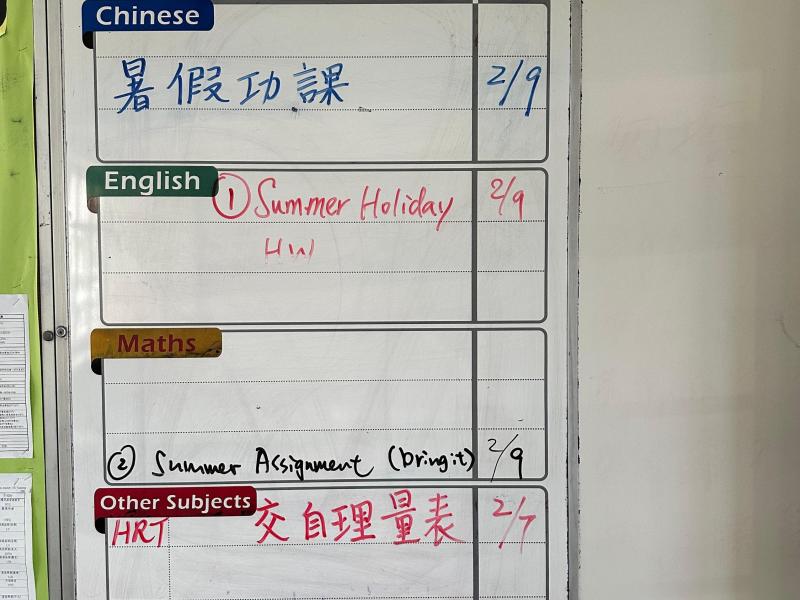 Chinese
暑假功課 2/9
English
① Summer Holiday 2/9
HW
Maths
② Summer Assignment (bring it) 2/9
Other Subjects
HRT 交自理量表 2/7